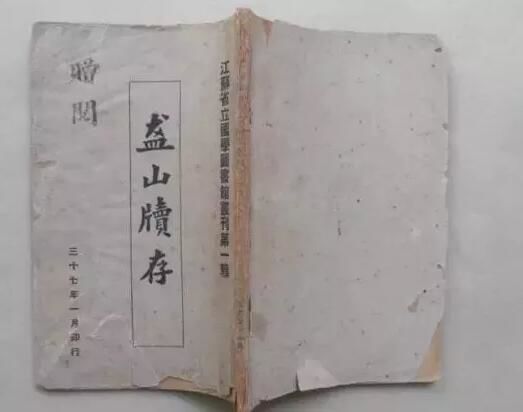 江蘇省立國學圖書館叢刊第一種
盋山牘存
贈閱
三十七年一月印行